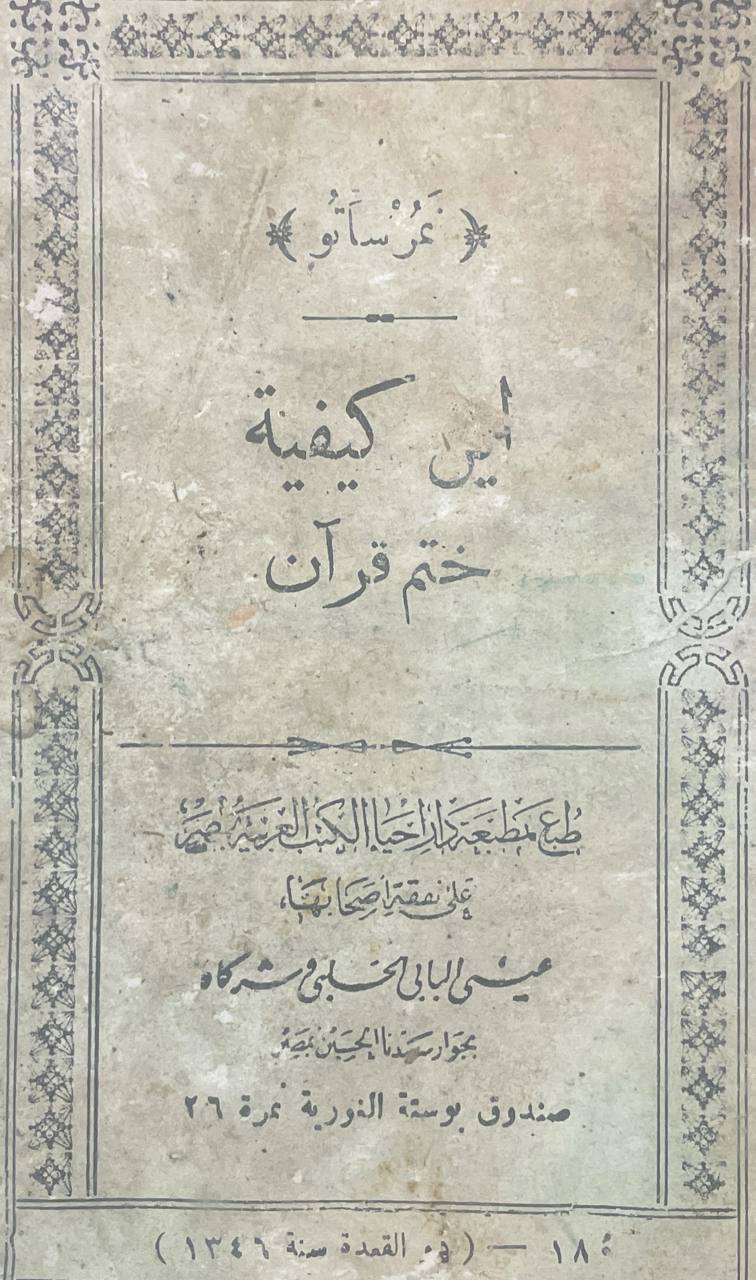 ﴿ نَمُرْ سَاتُو ﴾
اين كيفية
ختم قرآن
طُبِعَ بمَطبَعَة دَار إحيَاء الكتب العَرَبيَّة بمصِرْ
عَلى نفقة أصحَابهَا
عيسى البابي الحلبي وشركاه
بجوَار سَيّدنا الحسَين بمصِر
صندوق بوستة الغورية نمرة ٢٦
١٨٤ — ( ذى القعدة سنة ١٣٤٦ )